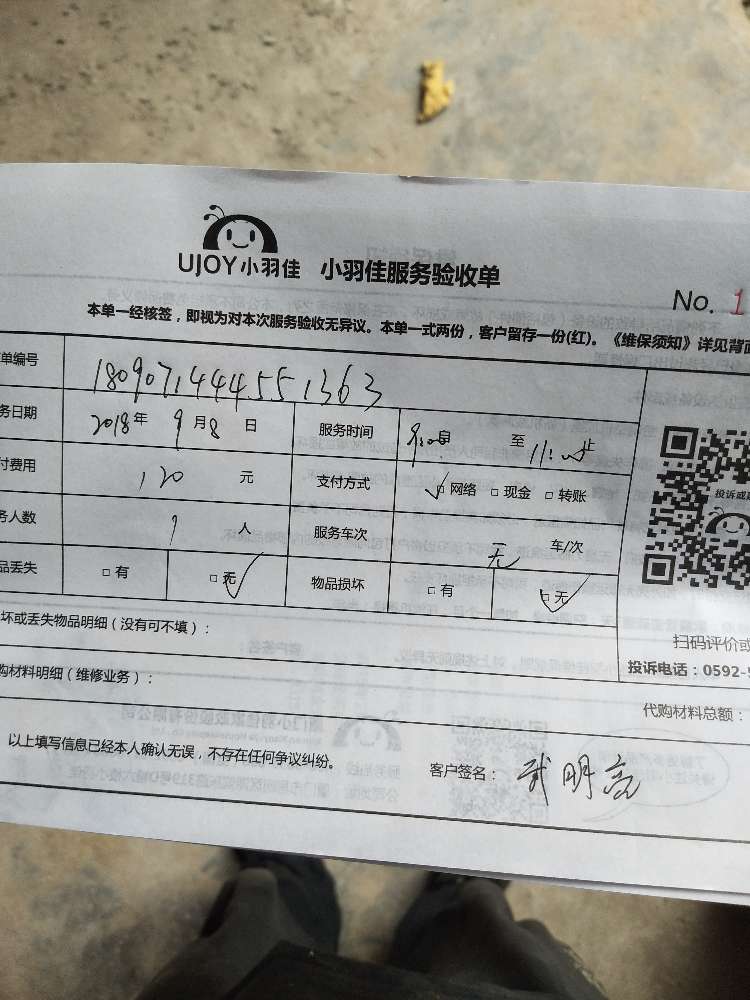 UJOY小羽佳 小羽佳服务验收单
No. 1
本单一经核签，即视为对本次服务验收无异议。本单一式两份，客户留存一份(红)。《维保须知》详见背面
单编号 1809071444551363
务日期 2018年 9月8日 服务时间 至 11:
付费用 120 元 支付方式 ☑网络 □现金 □转账
务人数 1 人 服务车次 无 车/次
品丢失 □有 ☑无 物品损坏 □有 ☑无
坏或丢失物品明细（没有可不填）：
购材料明细（维修业务）：
扫码评价或
投诉电话：0592-5
代购材料总额：
以上填写信息已经本人确认无误，不存在任何争议纠纷。 客户签名：武明亮